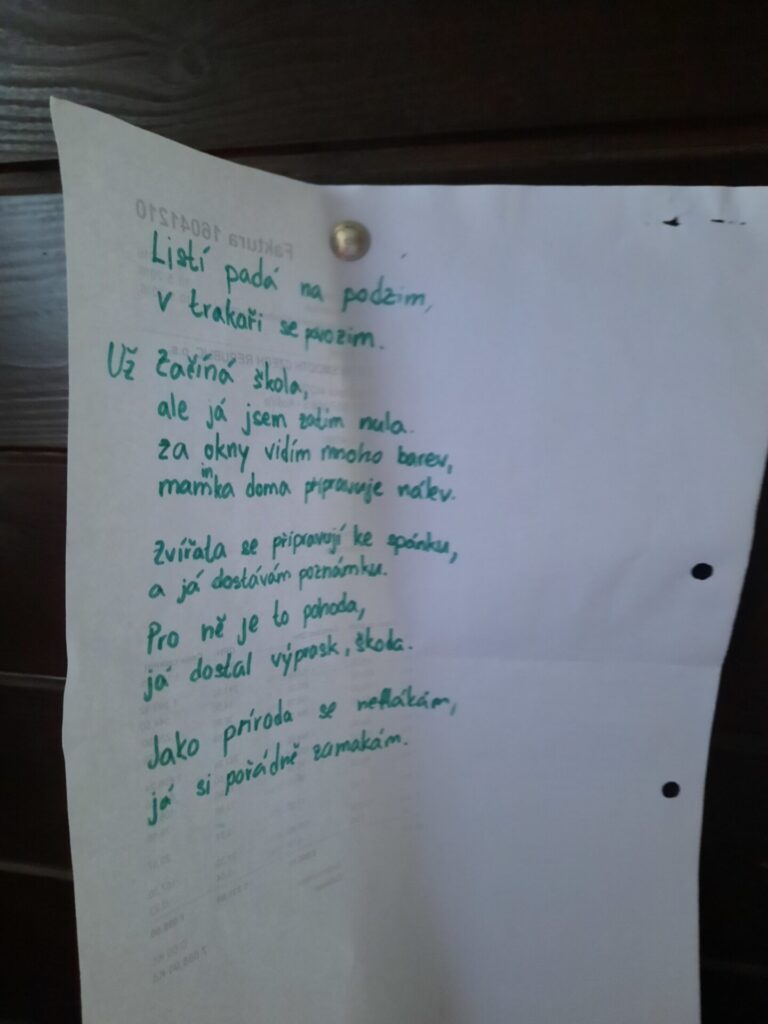 Faktura 16041210
Listí padá na podzim,
v trakaři se provozim.
Už začíná škola,
ale já jsem zatím nula.
za okny vidím mnoho barev,
maminka doma připravuje nálev.
Zvířata se připravují ke spánku,
a já dostávám poznámku.
Pro ně je to pohoda,
já dostal výprask, škoda.
Jako príroda se neflákám,
já si pořádně zamakám.